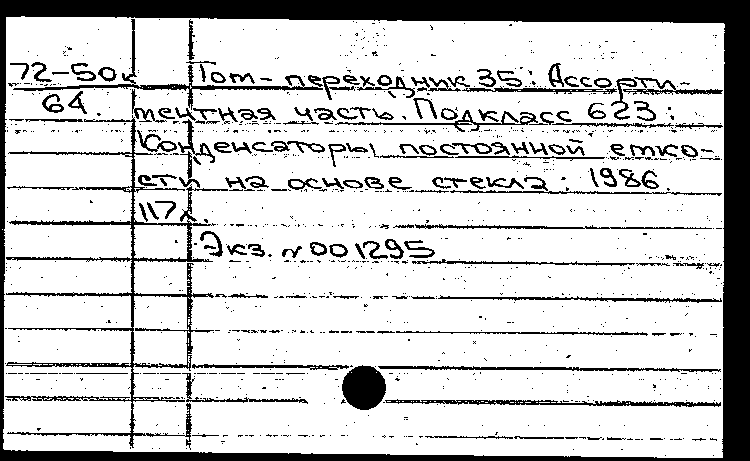 72-50к Том-переходник 35: Ассорти-
64. ментная часть. Подкласс 623:
Конденсаторы постоянной емко-
сти на основе стекла: 1986.
117л.
Экз. №001295